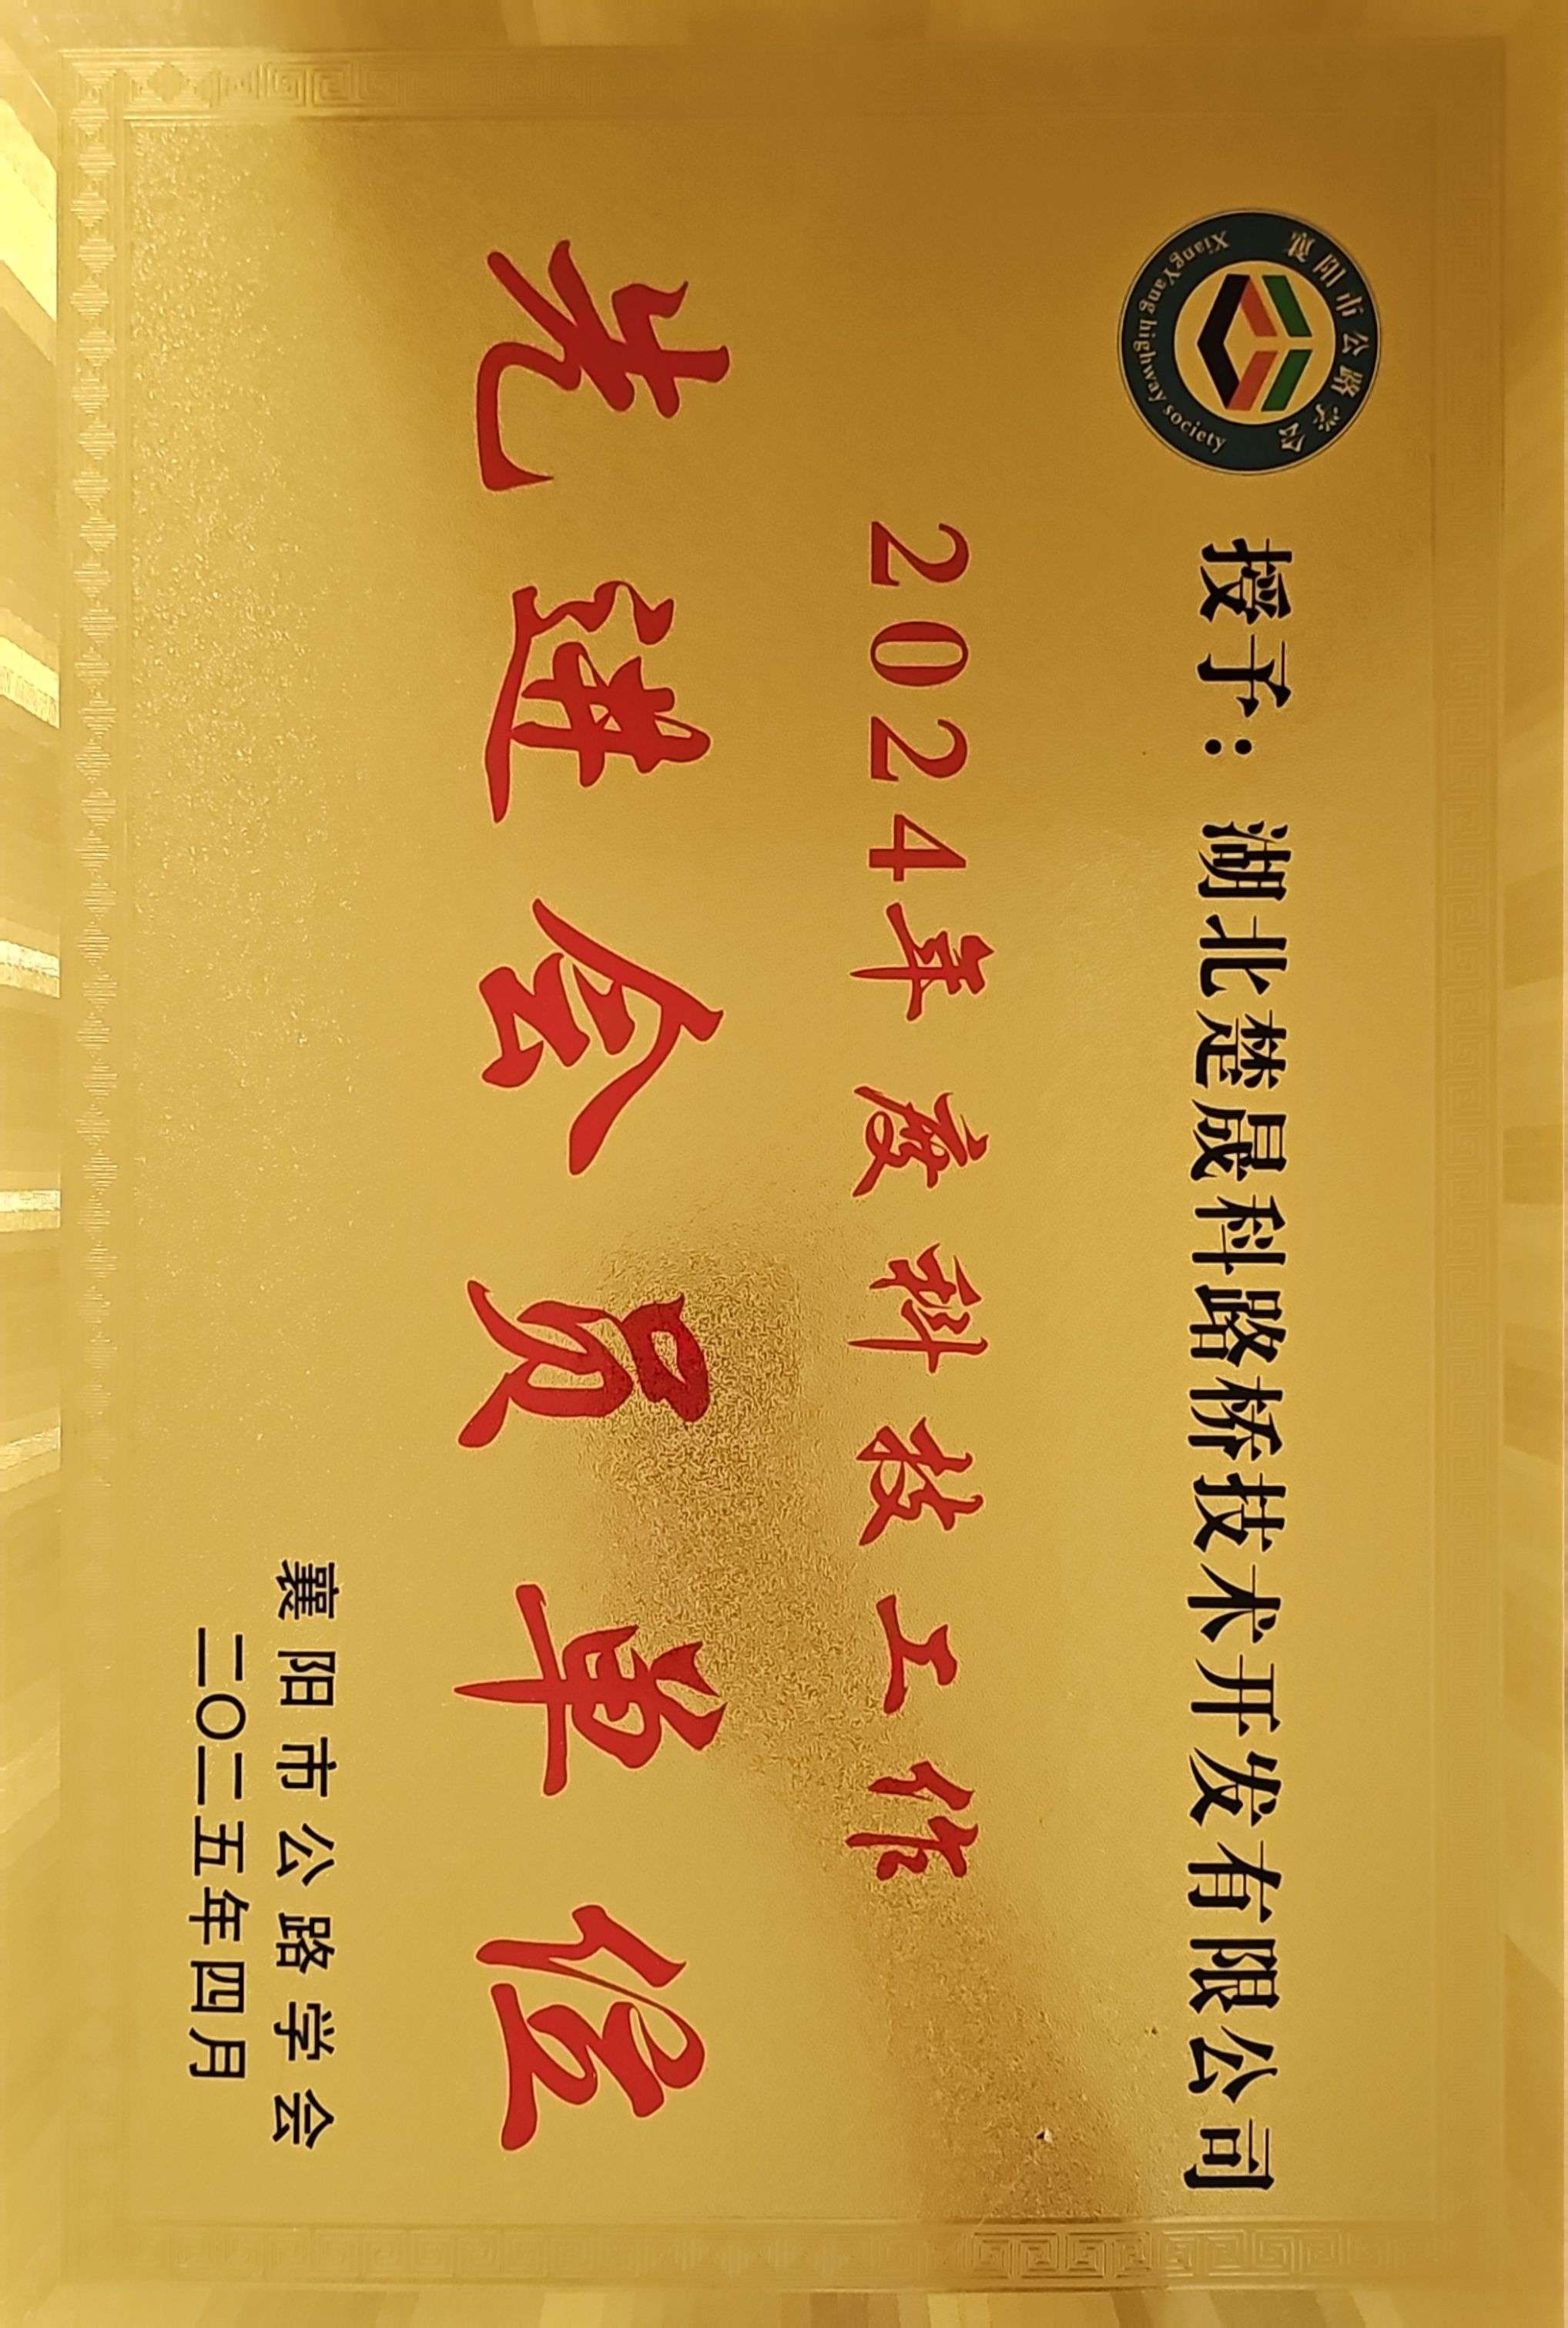 襄阳市公路学会
XiangYang highway society
授予：湖北楚晟科路桥技术开发有限公司
2024年度科技工作
先进会员单位
襄阳市公路学会
二〇二五年四月